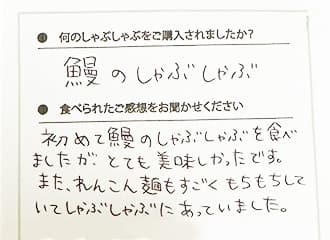 ❶ 何のしゃぶしゃぶをご購入されましたか?
鰻のしゃぶしゃぶ
❷ 食べられたご感想をお聞かせください
初めて鰻のしゃぶしゃぶを食べ
ましたが、とても美味しかったです。
また、れんこん麺もすごくもちもちして
いてしゃぶしゃぶにあっていました。